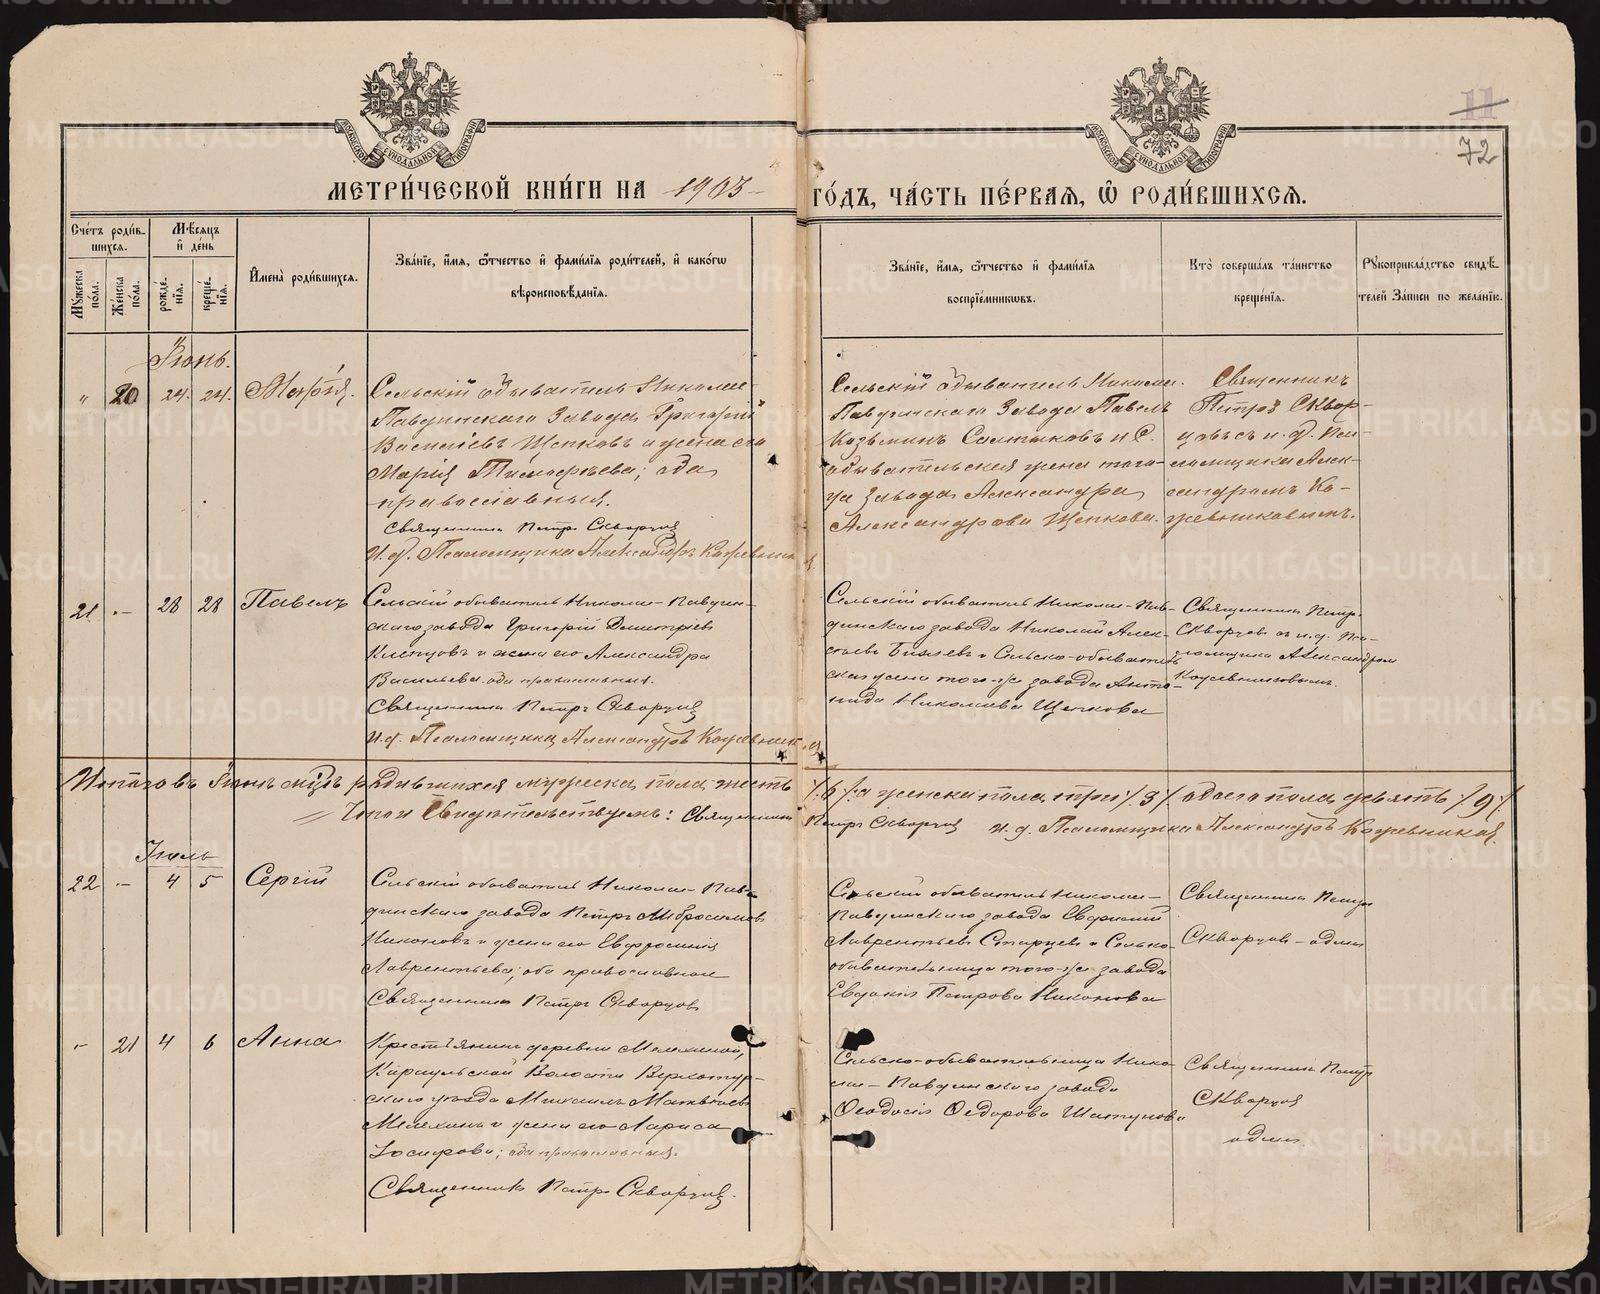 11
72
МОСКОВСКОЙ СѴНОДАЛЬНОЙ ТИПОГРАФІИ
МОСКОВСКОЙ СѴНОДАЛЬНОЙ ТИПОГРАФІИ
МЕТРИ́ЧЕСКОЙ КНИ́ГИ НА 1903 ГО́ДЪ, ЧА́СТЬ ПЕ́РВАЯ, Ѡ҆ РОДИ́ВШИХСЯ.
Сче́тъ роди́в-
шихся.
Мꙋ́жеска по́ла.
Же́нска по́ла.
Мѣ́сяцъ
и҆ де́нь
рожде́-
нїя.
креще́-
нїя.
И҆мена̀ роди́вшихся.
Зва́нїе, и҆́мя, ѻ҆́тчество и҆ фами́лїя роди́телей, и҆ како́гѡ
вѣроисповѣ́данїя.
Зва́нїе, и҆́мя, ѻ҆́тчество и҆ фами́лїя
воспрїе́мникѡвъ.
Кто̀ соверша́лъ та́инство
креще́нїя.
Рꙋкоприкла́дство свидѣ́-
телей за́писи по жела́нїю.
Іюнь.
" 20 24. 24. Марія.
Сельскій обыватель Николае-
Павдинскаго Завода Григорій
Васильевъ Щепковъ и жена его
Марія Тимофѣева; оба
православныя.
Священникъ Петръ Скворцов
И. д. Псаломщика Александръ Кожевников
Сельскій обыватель Николае-
Павдинскаго Завода Павелъ
Козьминъ Салтыковъ и С.
обывательская жена того-
же Завода Александра
Александрова Щепкова.
Священникъ
Петръ Сквор-
цовъ съ и. д. Пса-
ломщика Алек-
сандромъ Ко-
жевниковымъ.
21 - 28 28 Павелъ
Сельскій обыватель Николае-Павдин-
скаго завода Григорій Дмитріевъ
Клепцовъ и жена его Александра
Васильева оба православныя.
Священникъ Петръ Скворцов
И. д. Псаломщика Александръ Кожевников
Сельскій обыватель Николае-Пав-
динскаго завода Николай Алек-
и Сельско-обыватель
ская жена того-же завода Анто-
нида Николаева Щепкова
Священникъ Петр
Скворцов съ и. д. Пса-
ломщика Александром
Кожевниковым.
Итого въ Іюнѣ мцѣ родившихся мужеска пола шесть /:6/: а женска пола три /:3/: обоего пола девять /:9/:
Что и Свидѣтельствуемъ: Священник Петръ Скворцов и. д. Псаломщика Александръ Кожевников.
Іюль
22 - 4 5 Сергій
Сельскій обыватель Николае-Пав-
динскаго завода Петръ Амбросимовъ
Никоновъ и жена его Евфросинія
Лаврентьева; оба православные
Священникъ Петръ Скворцов
Сельскій обыватель Николае-
Павдинскаго завода Евфимій
Лаврентьевъ Старцевъ и Сельско-
обывательница того-же завода
Евдокія Петрова Никонова
Священникъ Петр
Скворцов - один
- 21 4 6 Анна
Крестьянинъ деревни Мелехиной,
Караульской Волости Верхотур-
скаго уѣзда Михаилъ Матвѣевъ
Мелехинъ и жена его Лариса
Іосифова; оба православныя.
Священникъ Петръ Скворцов.
Сельско-обывательница Нико-
лае-Павдинскаго завода
Ѳеодосія Ѳедорова Шатунова
Священникъ Петр
Скворцов
один
METRIKI.GASO-URAL.RU